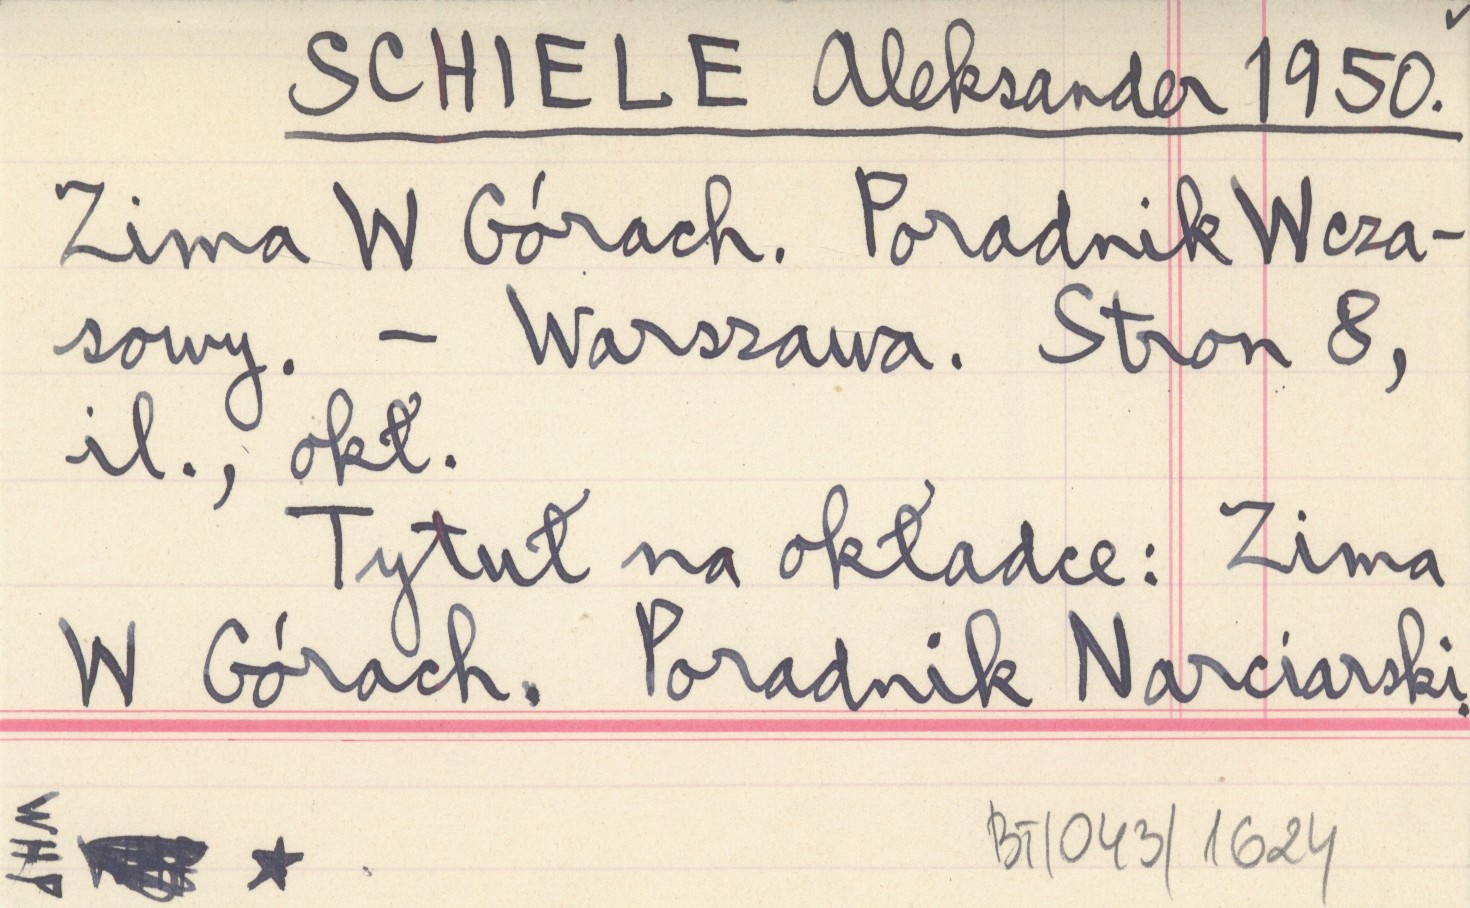 SCHIELE Aleksander 1950.
Zima W Górach. Poradnik Wcza-
sowy. – Warszawa. Stron 8,
il., okł.
Tytuł na okładce: Zima
W Górach. Poradnik Narciarski.
WHP
BT/043/1624